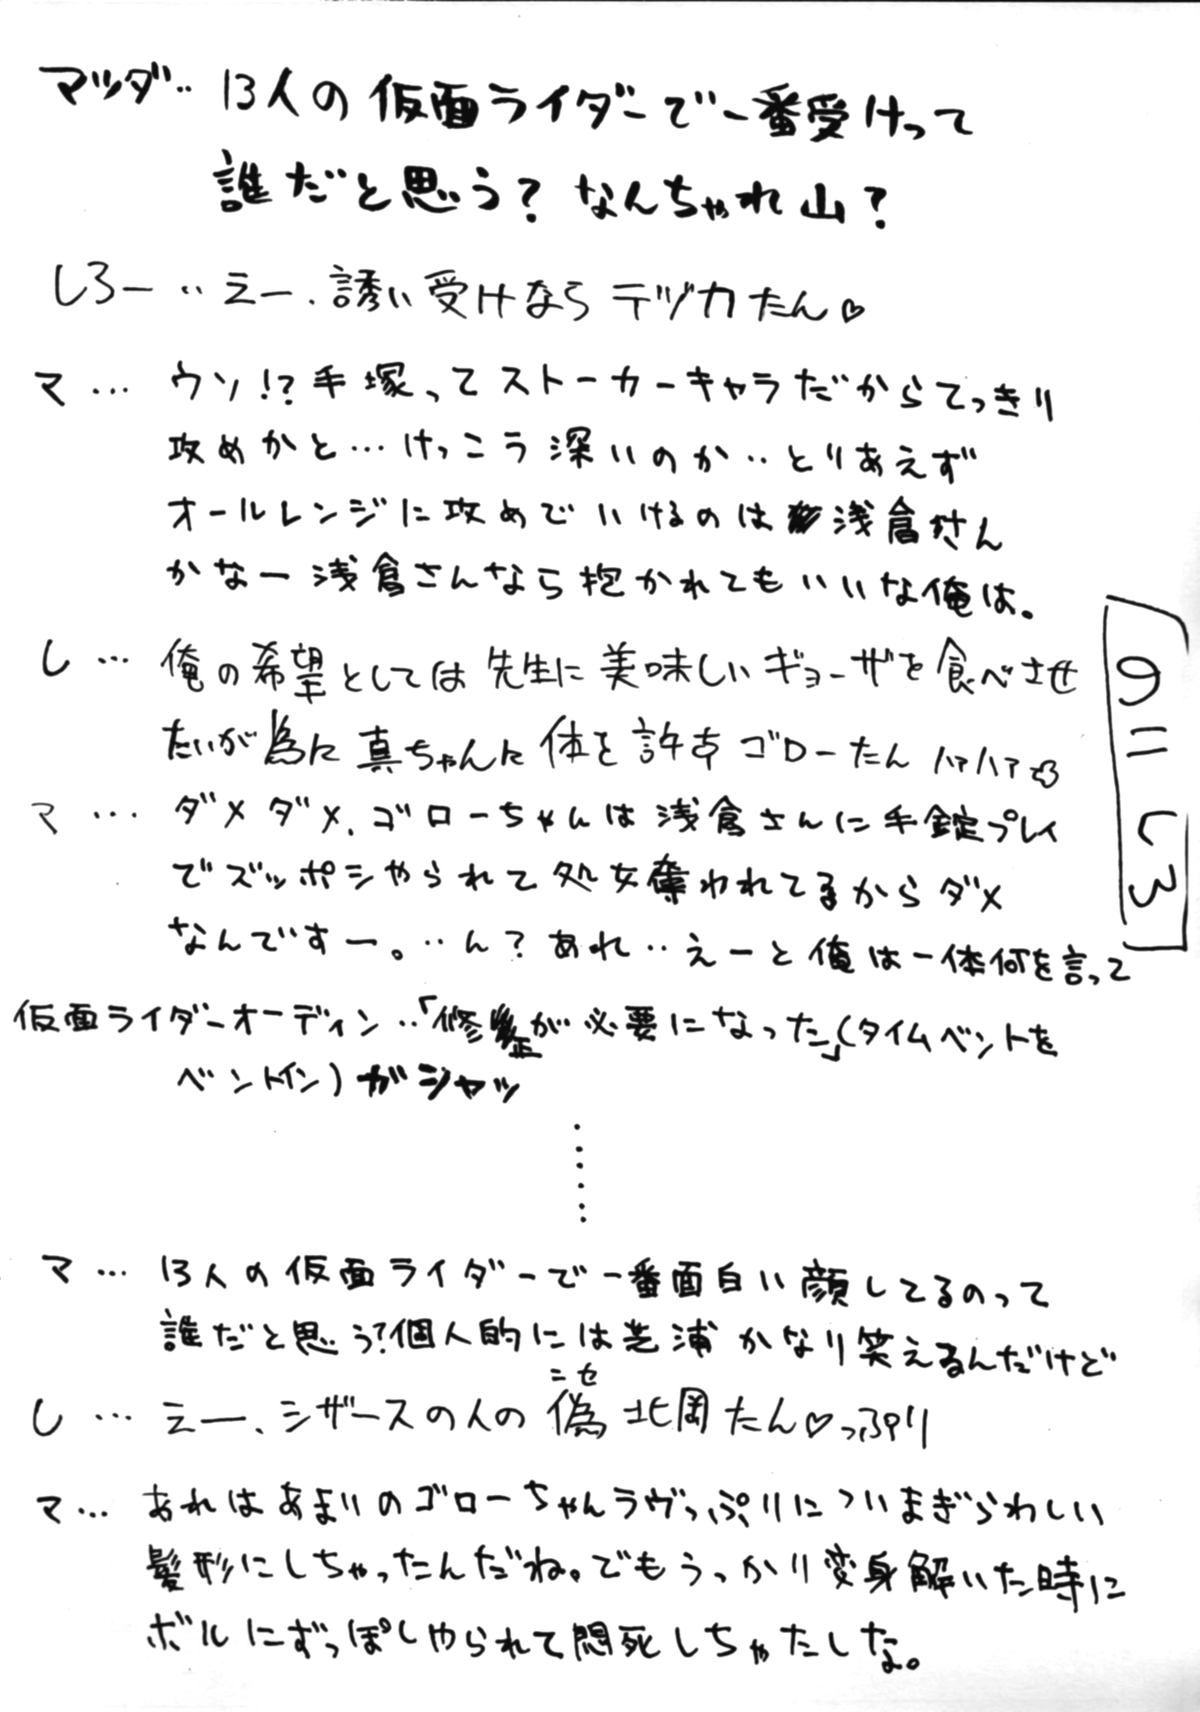 マツダ‥ 13人の仮面ライダーで一番受けって
誰だと思う？なんちゃれ山？
しろー‥えー、誘い受けならテヅカたん♡
マ… ウソ!?手塚ってストーカーキャラだからてっきり
攻めかと…けっこう深いのか‥とりあえず
オールレンジに攻めでいけるのは浅倉さん
かなー浅倉さんなら抱かれてもいいな俺は。
し… 俺の希望としては先生に美味しいギョーザを食べさせ
たいが為に真ちゃんに体を許すゴローたんハァハァ
マ… ダメダメ、ゴローちゃんは浅倉さんに手錠プレイ
でズッポシやられて処女奪われてるからダメ
なんですー。‥ん？あれ‥えーと俺は一体何を言って
仮面ライダーオーディン‥「修正が必要になった」(タイムベントを
ベントイン)ガシャッ
マ… 13人の仮面ライダーで一番面白い顔してるのって
誰だと思う？個人的には芝浦かなり笑えるんだけど
し… えー、シザースの人の偽北岡たん♡っぷり
ニセ
マ… あれはあまりのゴローちゃんラヴっぷりについまぎらわしい
髪形にしちゃったんだね。でもうっかり変身解いた時に
ボルにずっぽしやられて悶死しちゃたしな。
の=しろ